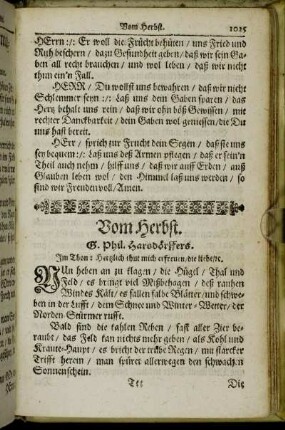 Vom Herbst. 1025
HErrn :/: Er woll die Frücht behüten / uns Fried und
Ruh bescheren / dazu Gesundheit geben / daß wir sein Ga-
ben all recht brauchen / und wol leben / daß wir nicht
thun ein'n Fall.
HERR / Du wollst uns bewahren / daß wir nicht
Schlemmer seyn :/: Laß uns dein Gaben sparen / das
Hertz behalt uns rein / daß wir ohn böß Gewissen / mit
rechter Danckbarkeit / dein Gaben wol geniessen / die Du
uns hast bereit.
HErr / sprich zur Frucht dein Segen / daß sie uns
sey bequem :/: Laß uns deß Armen pflegen / daß er sein'n
Theil auch nehm / hilff uns / daß wir auff Erden / auß
Glauben leben wol / den Himmel laß uns werden / so
sind wir Freuden voll / Amen.
Vom Herbst.
G. Phil. Harsdörffers.
Im Thon: Hertzlich thut mich erfreuen / die liebe / ꝛc.
NUn heben an zu klagen / die Hügel / Thal und
Feld / es bringt viel Mißbehagen / deß rauhen
Windes Kält / es fallen falbe Blätter / und schwe-
ben in der Lufft / dem Schnee und Winter-Wetter / der
Norden Stürmer rufft.
Bald sind die kahlen Reben / fast aller Zier be-
raubt / das Feld kan nichts mehr geben / als Kohl und
Kraute-Haupt / es bricht der trübe Regen / mit starcker
Trifft herein / man spürt allerwegen den schwach'n
Sonnenschein.
Ttt Die